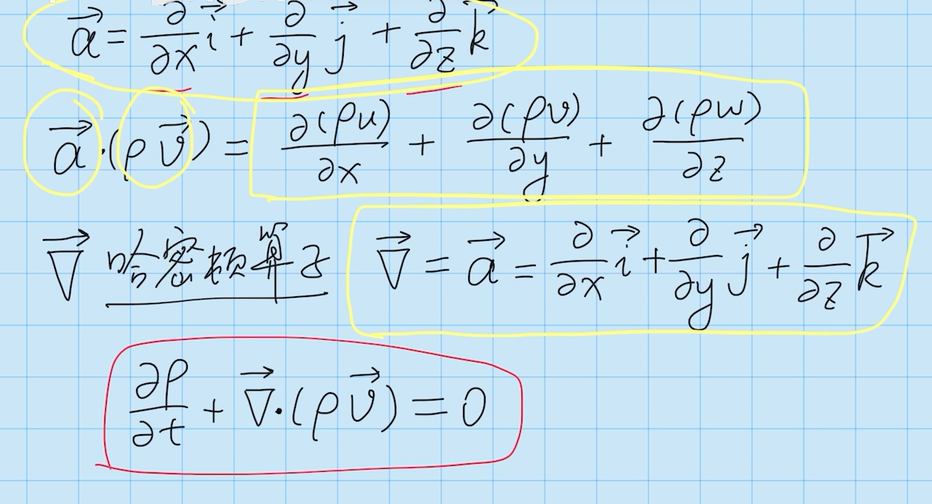 a⃗ = ∂/∂x i⃗ + ∂/∂y j⃗ + ∂/∂z k⃗
a⃗·(ρv⃗) = ∂(ρu)/∂x + ∂(ρv)/∂y + ∂(ρw)/∂z
∇⃗ 哈密顿算子 ∇⃗ = a⃗ = ∂/∂x i⃗ + ∂/∂y j⃗ + ∂/∂z k⃗
∂ρ/∂t + ∇⃗·(ρv⃗) = 0